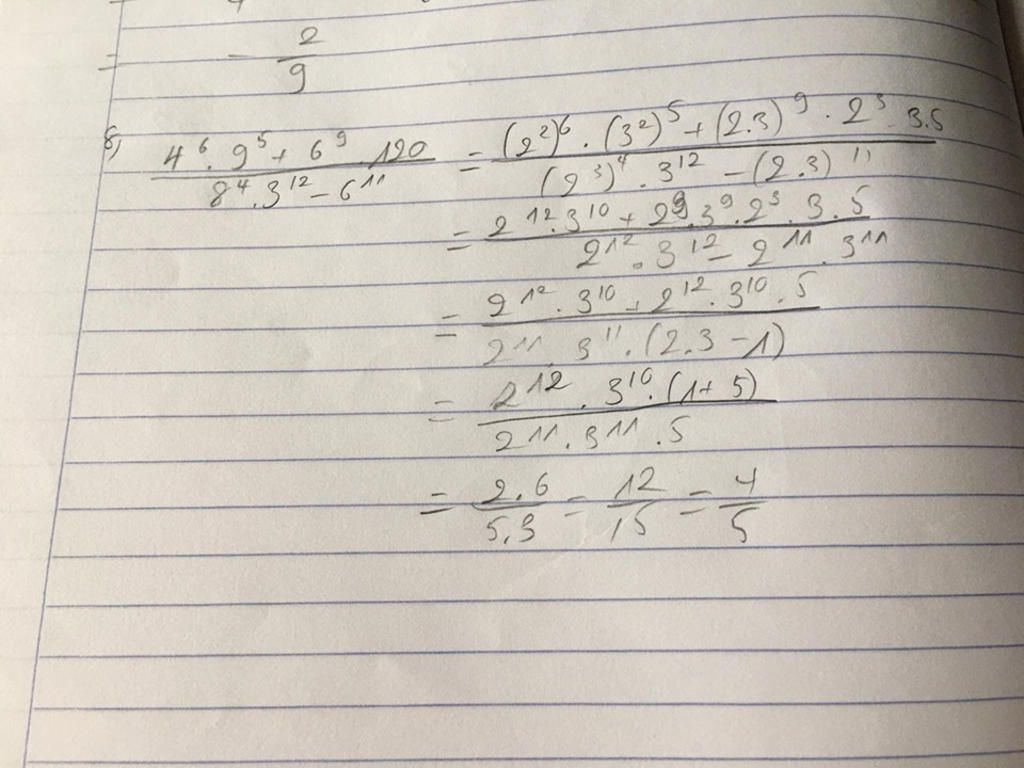 = - 2/9
8, (4^6 . 9^5 + 6^9 . 120)/(8^4 . 3^12 - 6^11) = ((2^2)^6 . (3^2)^5 + (2.3)^9 . 2^3 . 3.5)/((2^3)^4 . 3^12 - (2.3)^11)
= (2^12 . 3^10 + 2^9 . 3^9 . 2^3 . 3 . 5)/(2^12 . 3^12 - 2^11 . 3^11)
= (2^12 . 3^10 + 2^12 . 3^10 . 5)/(2^11 . 3^11 . (2.3 - 1))
= (2^12 . 3^10 . (1+5))/(2^11 . 3^11 . 5)
= (2.6)/(5.3) = 12/15 = 4/5